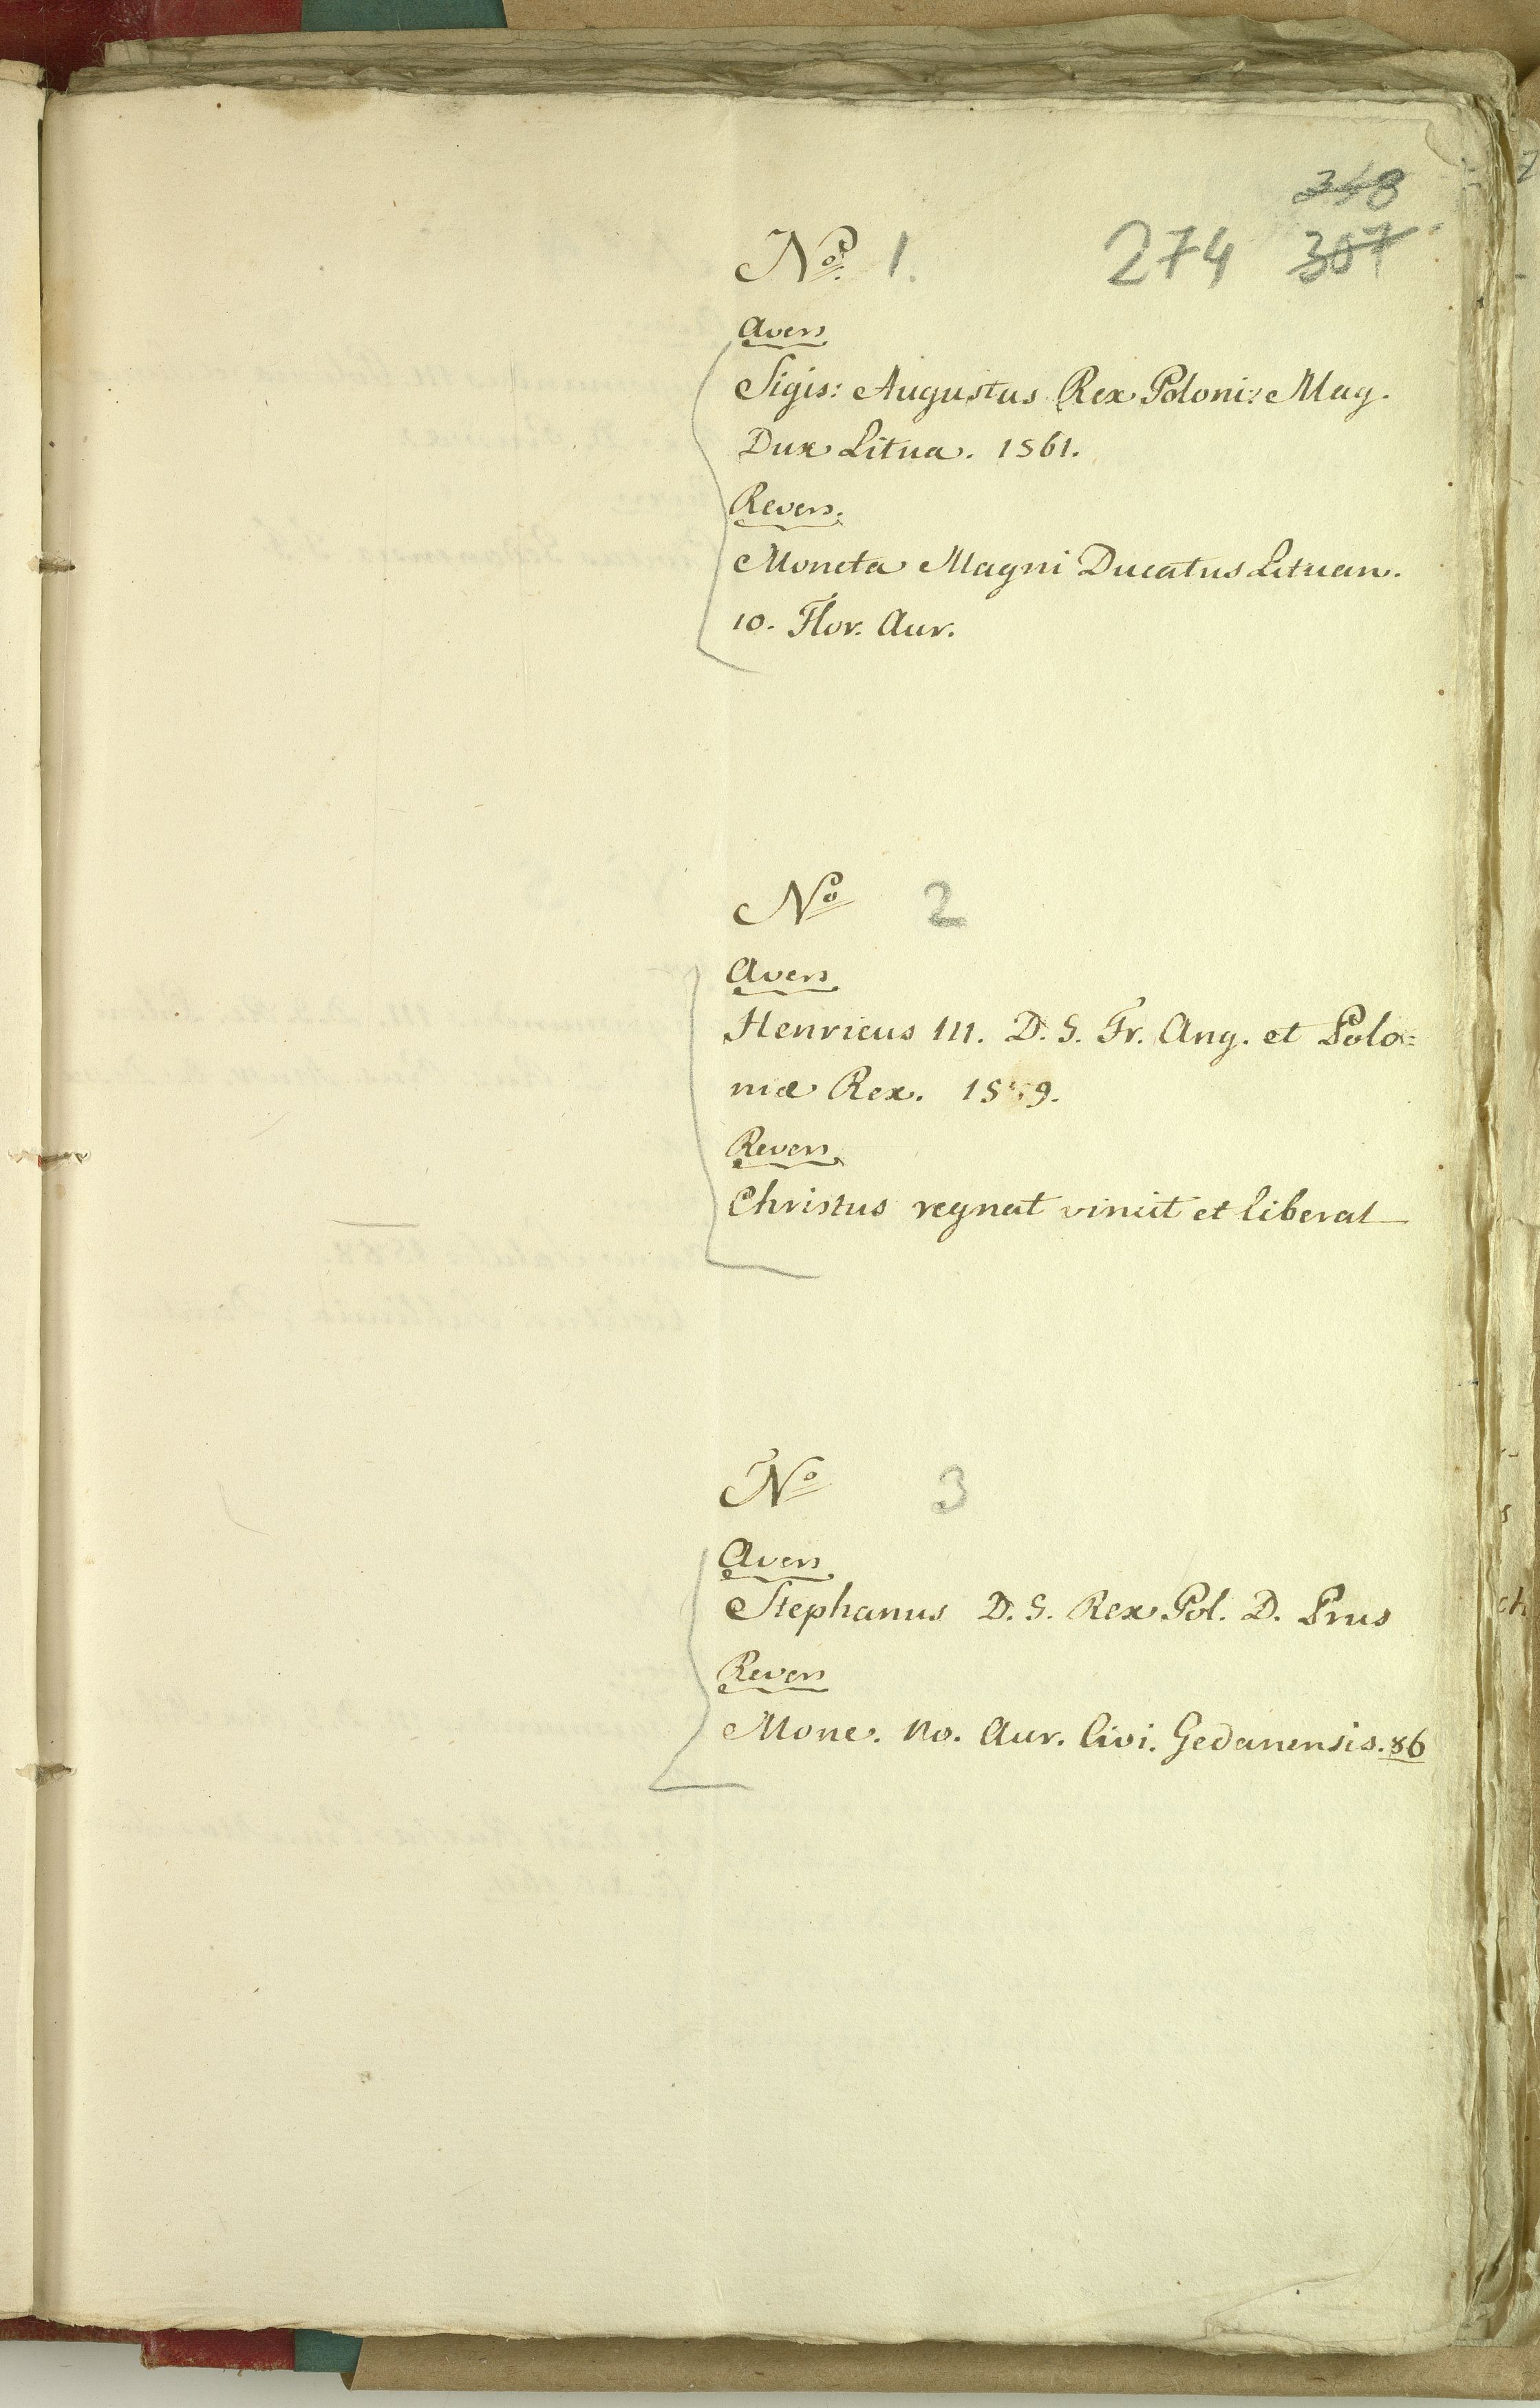 274
No. 1.
Avers
Sigis: Augustus Rex Poloni: Mag.
Dux Litua. 1561.
Revers.
Moneta Magni Ducatus Lituan.
10. Flor. Aur.
No 2
Avers
Henricus III. D. G. Fr. Ang. et Polo=
niæ Rex.
Revers
Christus regnat vincit et liberat
No 3
Avers
Stephanus D. G. Rex Pol. D. Prus
Revers
Mone. No. Aur. Civi. Gedanensis. 86